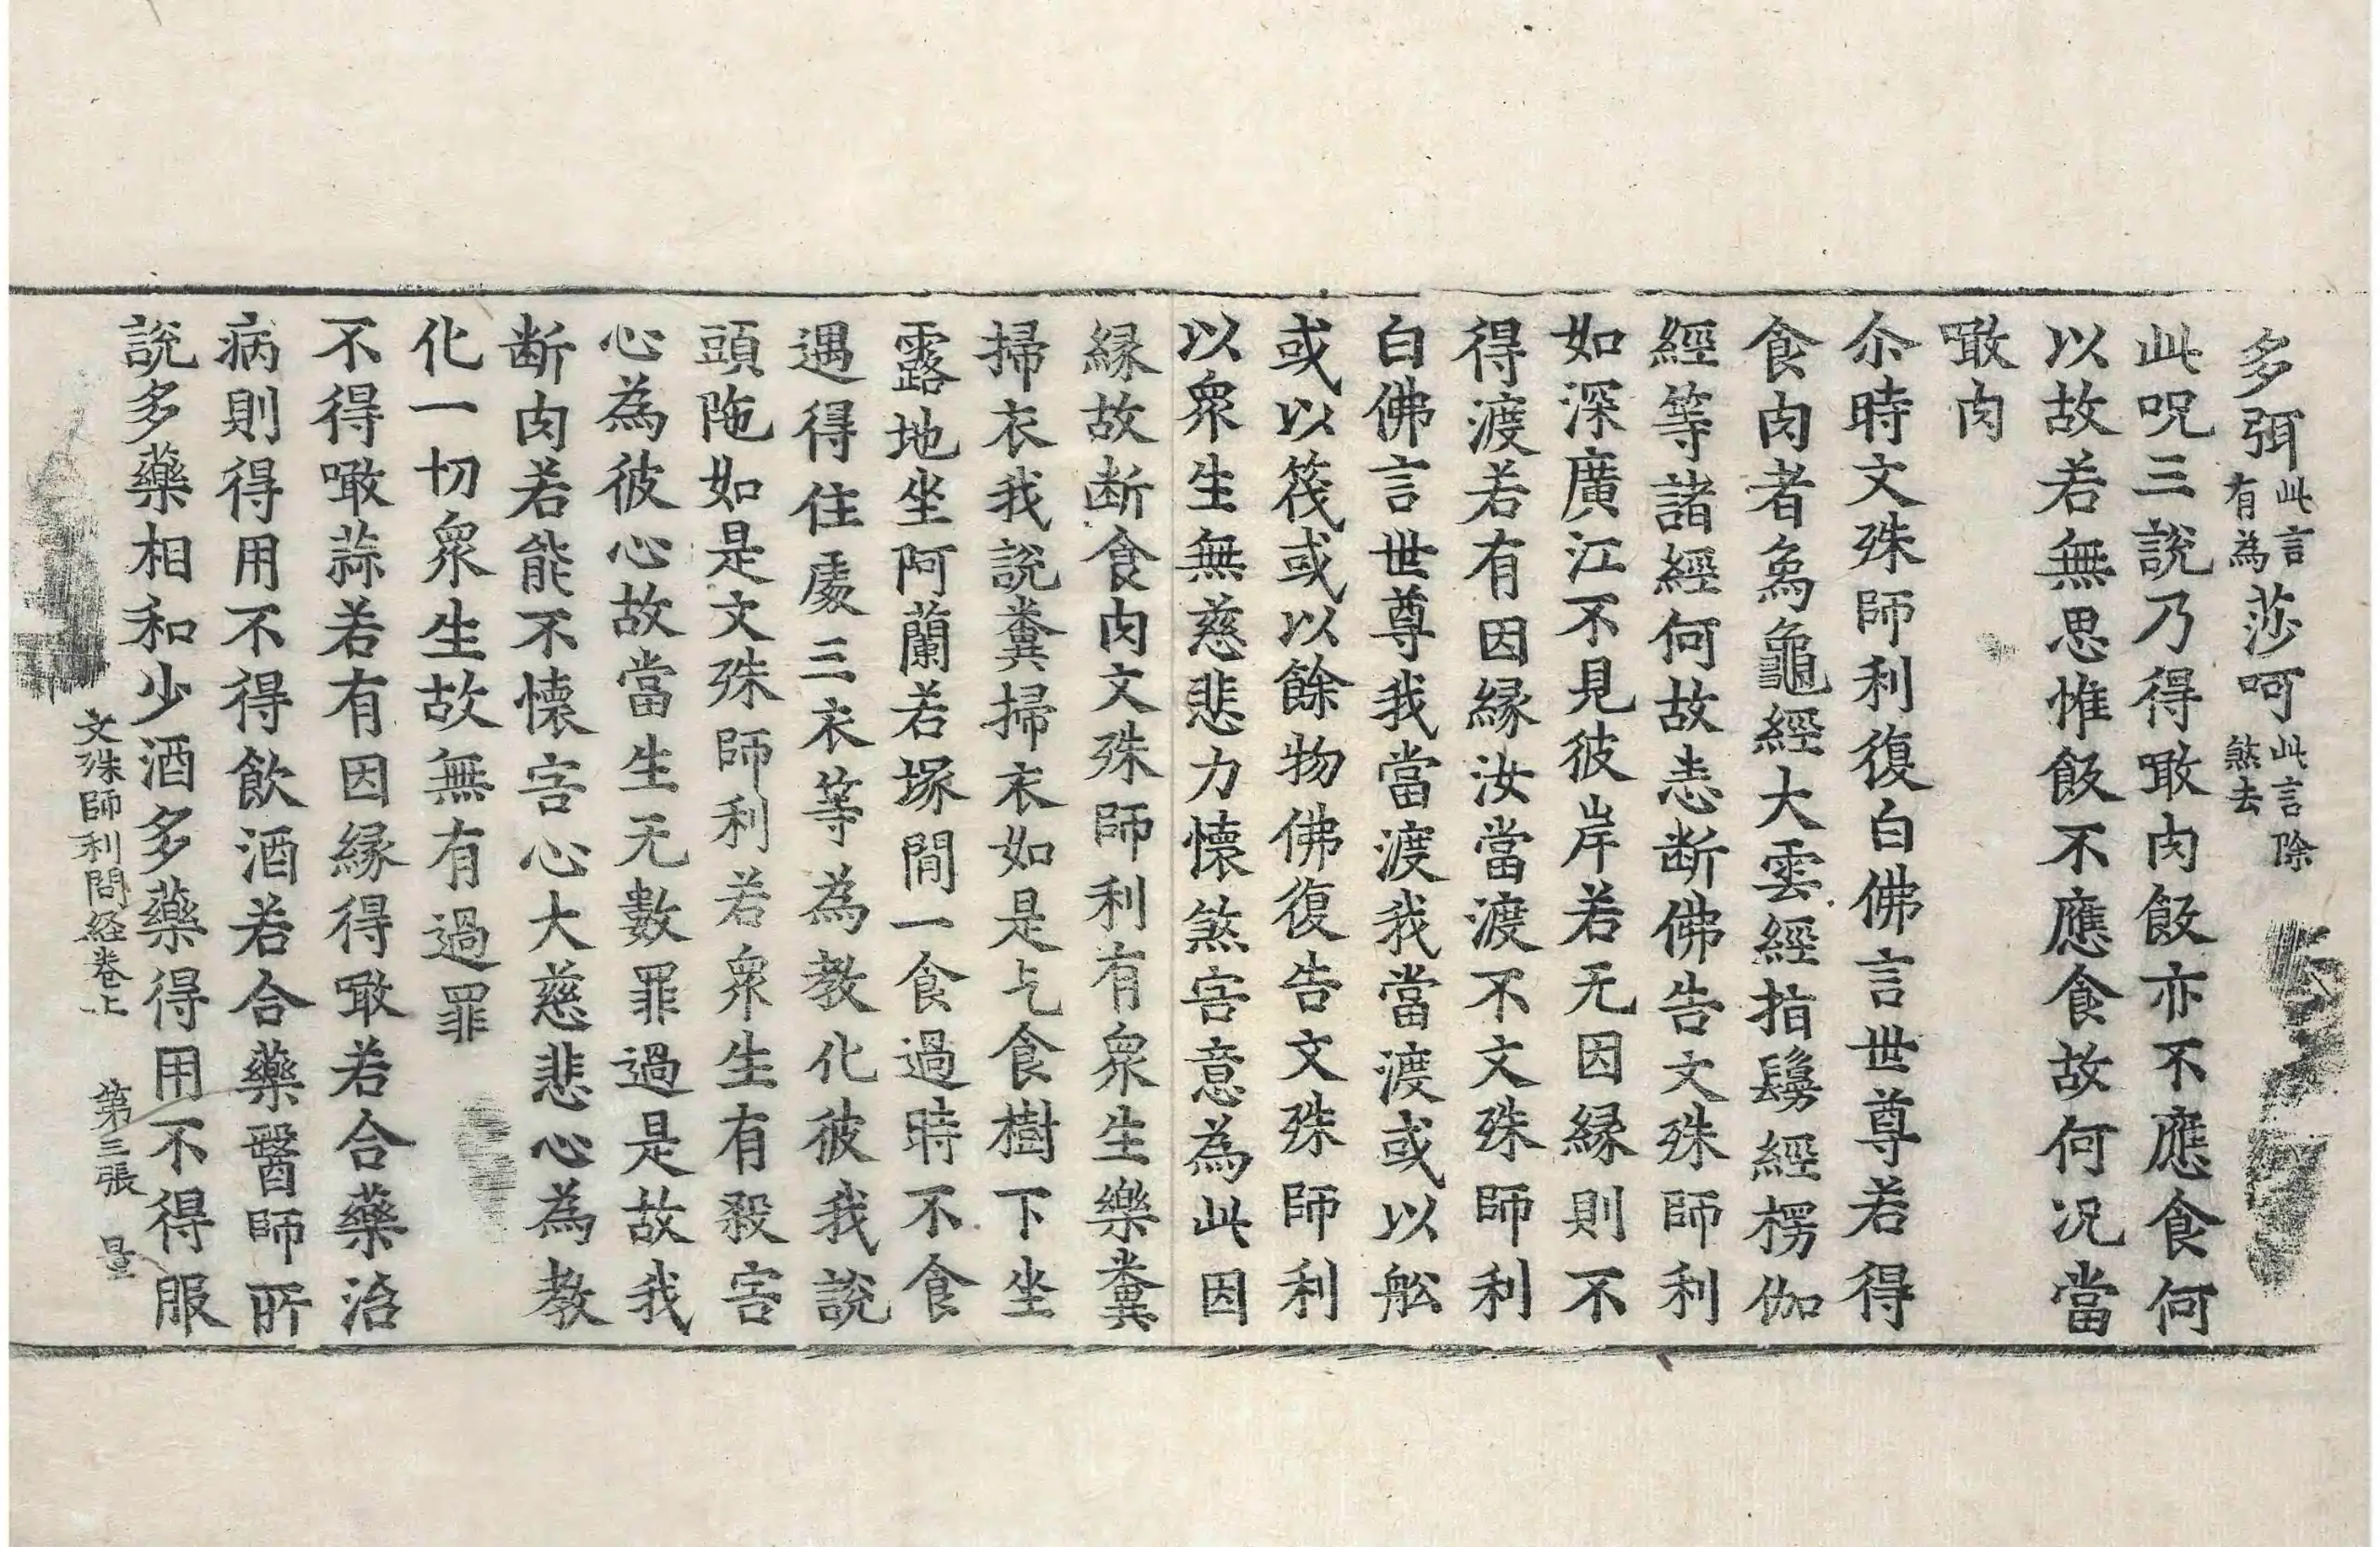 多弭此言有為莎呵此言除煞去
此呪三說乃得噉肉飯亦不應食何
以故若無思惟飯不應食故何况當
噉肉
尒時文殊師利復白佛言世尊若得
食肉者象龜經大雲經指鬘經楞伽
經等諸經何故恚断佛告文殊師利
如深廣江不見彼岸若无因緣則不
得渡若有因緣汝當渡不文殊師利
白佛言世尊我當渡我當渡或以舩
或以筏或以餘物佛復告文殊師利
以衆生無慈悲力懷煞害意為此因
緣故断食肉文殊師利有衆生樂糞
掃衣我說糞掃衣如是乞食樹下坐
露地坐阿蘭若塚間一食過時不食
遇得住處三衣等為教化彼我說
頭陁如是文殊師利若衆生有殺害
心為彼心故當生无數罪過是故我
断肉若能不懷害心大慈悲心為教
化一切衆生故無有過罪
不得噉蒜若有因緣得噉若合藥治
病則得用不得飲酒若合藥醫師所
說多藥相和少酒多藥得用不得服
文殊師利問経卷上 第三張 量